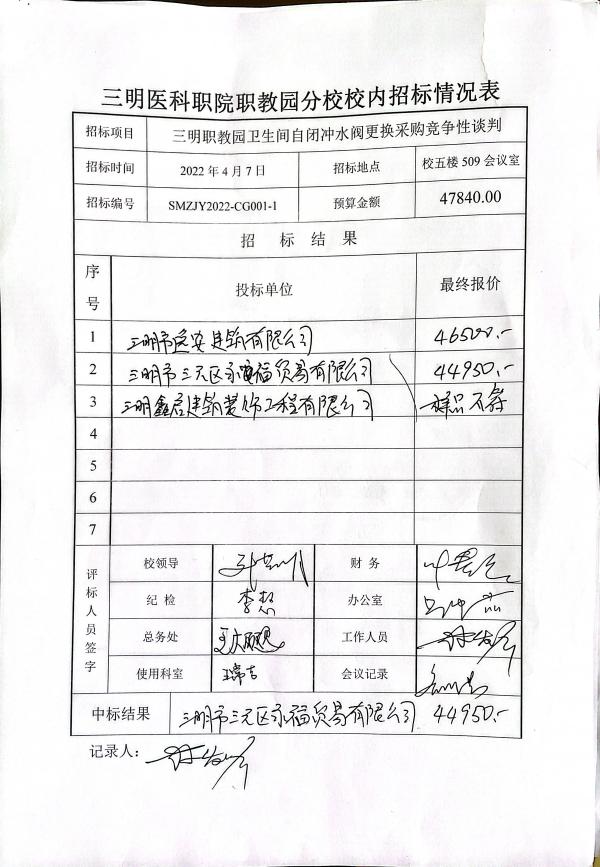 三明医科职院职教园分校校内招标情况表
招标项目 三明职教园卫生间自闭冲水阀更换采购竞争性谈判
招标时间 2022年4月7日 招标地点 校五楼509会议室
招标编号 SMZJY2022-CG001-1 预算金额 47840.00
招 标 结 果
序号 投标单位 最终报价
1 三明市 安建筑有限公司 46500.-
2 三明市三元区永福贸易有限公司 44950.-
3 三明鑫 建筑装饰工程有限公司 样品不符
4
5
6
7
评标人员签字
校领导 财务
纪检 李 办公室
总务处 工作人员
使用科室 会议记录
中标结果 三明市三元区永福贸易有限公司 44950.-
记录人: